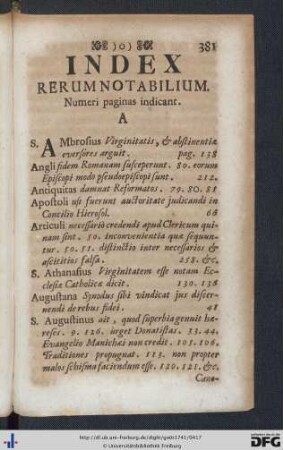 )o( 381
INDEX
RERUM NOTABILIUM.
Numeri paginas indicant.
A
S. AMbrosius Virginitatis, & abstinentiæ
eversores arguit. pag. 138
Angli fidem Romanam susceperunt. 80. eorum
Episcopi modo pseudoepiscopi sunt. 212.
Antiquitas damnat Reformatos. 79. 80. 81
Apostoli usi fuerunt auctoritate judicandi in
Concilio Hierosol. 66
Articuli necessariò credendi apud Clericum qui-
nam sint. 50. inconvenientia quæ sequun-
tur. 50. 51. distinctio inter necessarios &
ascititios falsa. 258. &c.
S. Athanasius Virginitatem esse notam Ec-
clesiæ Catholicæ dicit. 130. 136
Augustana Synodus sibi vindicat jus discer-
nendi de rebus fidei. 41
S. Augustinus ait, quod superbia genuit hæ-
reses. 9. 126. urget Donatistas. 33. 44.
Evangelio Manichæi non credit. 105. 106.
Traditiones propugnat. 113. non propter
malos schisma faciendum esse. 120. 121. &c.
Cano-
http://dl.ub.uni-freiburg.de/diglit/goeb1741/0417
© Universitätsbibliothek Freiburg
gefördert durch die
DFG